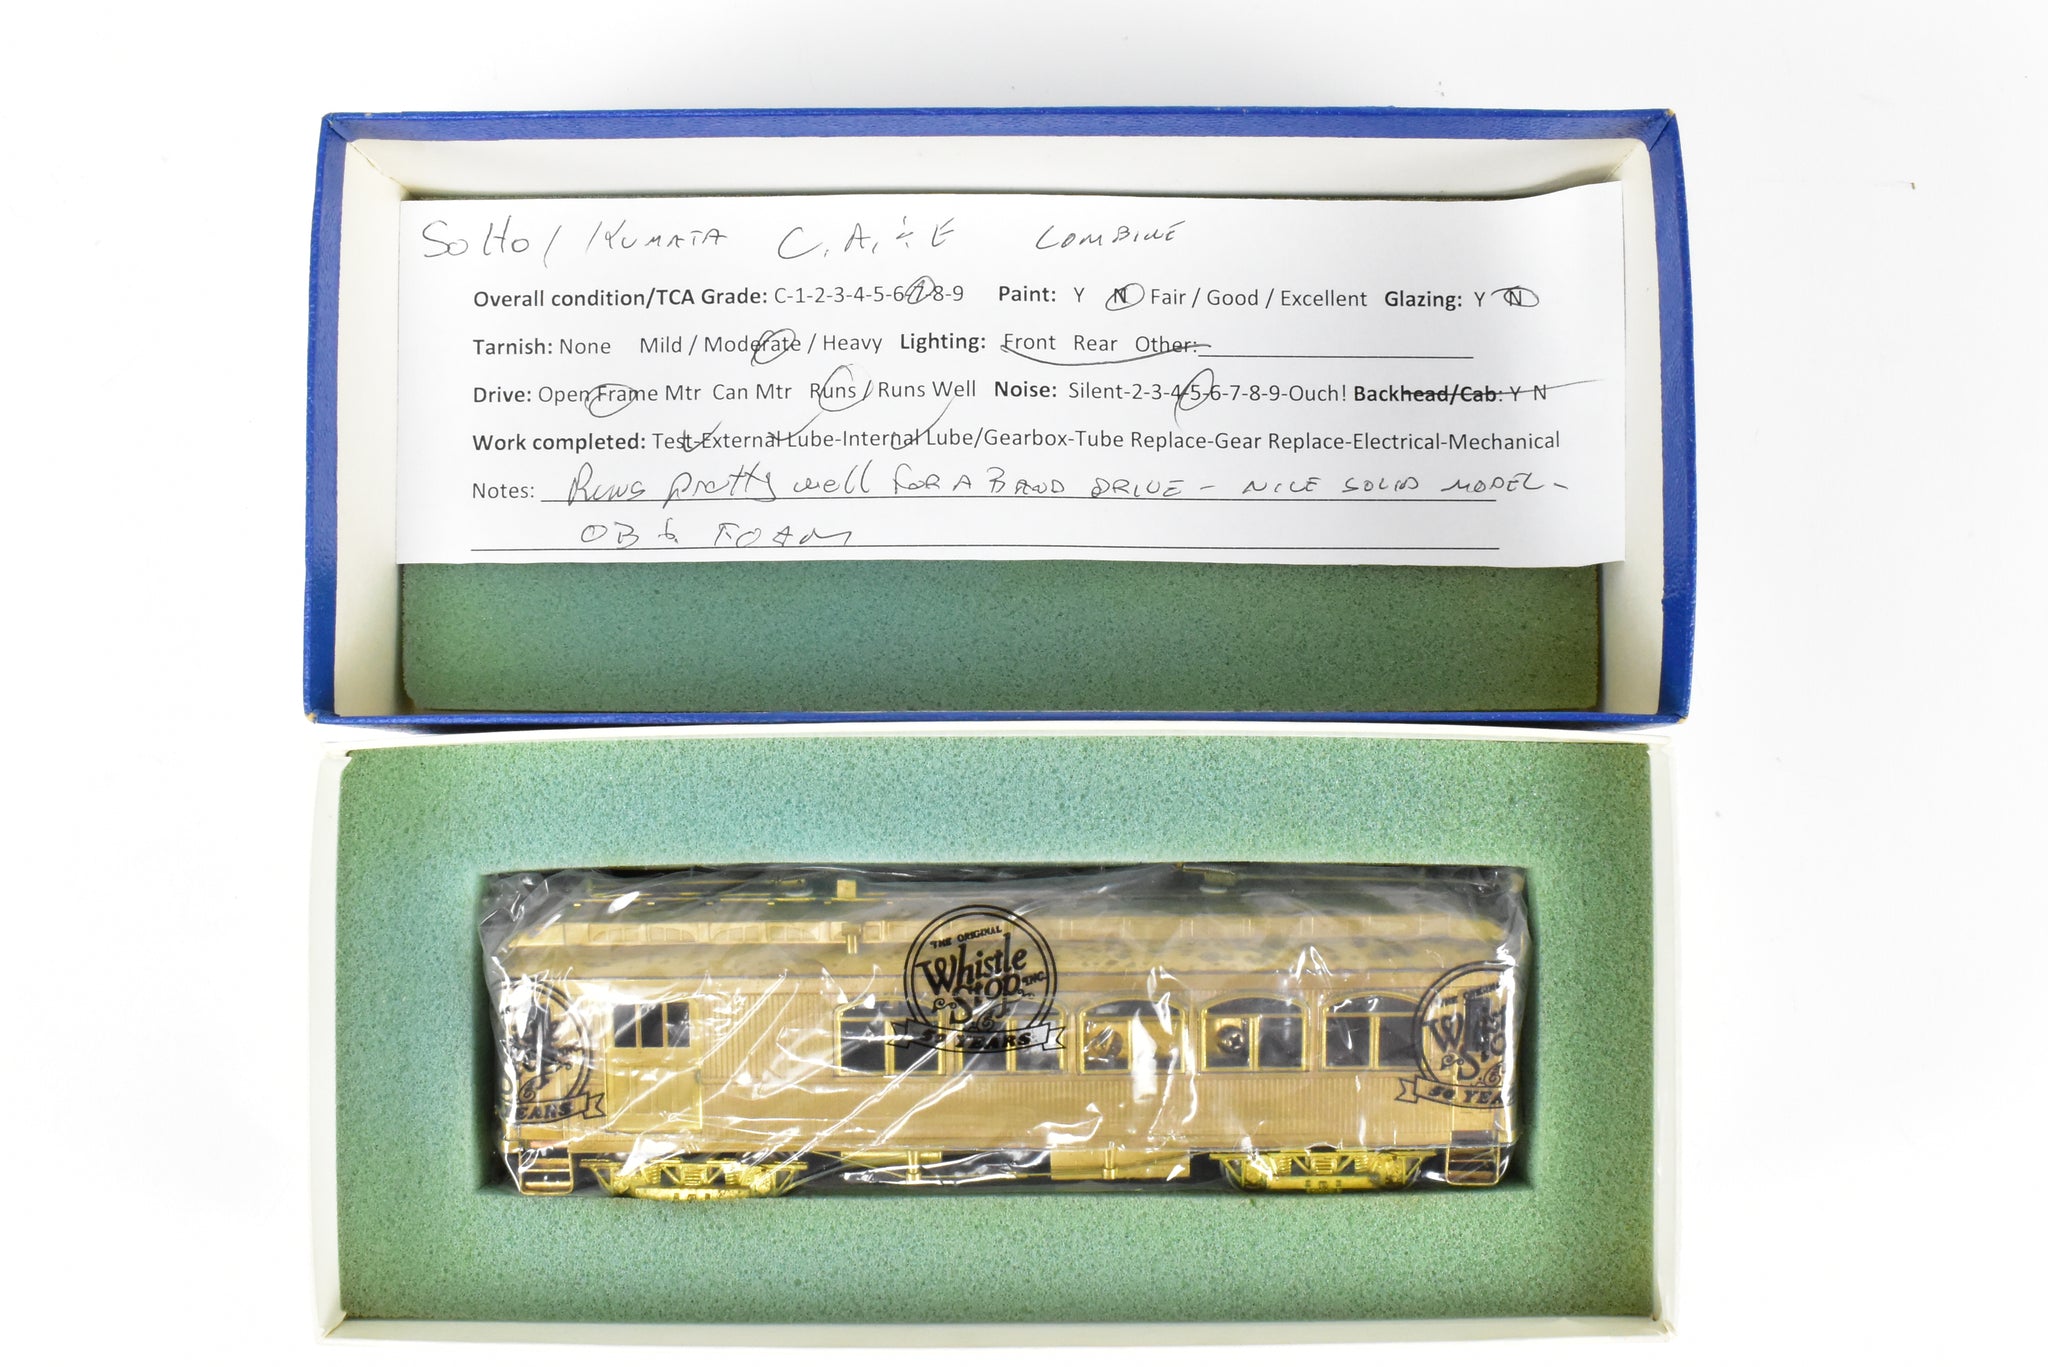 SoHo / KUMATA C.A.&E COMBINE
Overall condition/TCA Grade: C-1-2-3-4-5-6-7-8-9 Paint: Y N Fair / Good / Excellent Glazing: Y N
Tarnish: None Mild / Moderate / Heavy Lighting: Front Rear Other:
Drive: Open Frame Mtr Can Mtr Runs / Runs Well Noise: Silent-2-3-4-5-6-7-8-9-Ouch! Backhead/Cab: Y N
Work completed: Test-External Lube-Internal Lube/Gearbox-Tube Replace-Gear Replace-Electrical-Mechanical
Notes: Runs pretty well FOR A BAND DRIVE - NICE SOLID MODEL -
OB & FOAM
THE ORIGINAL
Whistle
Stop INC.
50 YEARS
EARS
THE
W
St
50 YEA